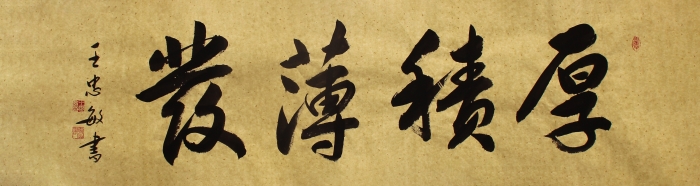 厚積薄發
王忠敏書